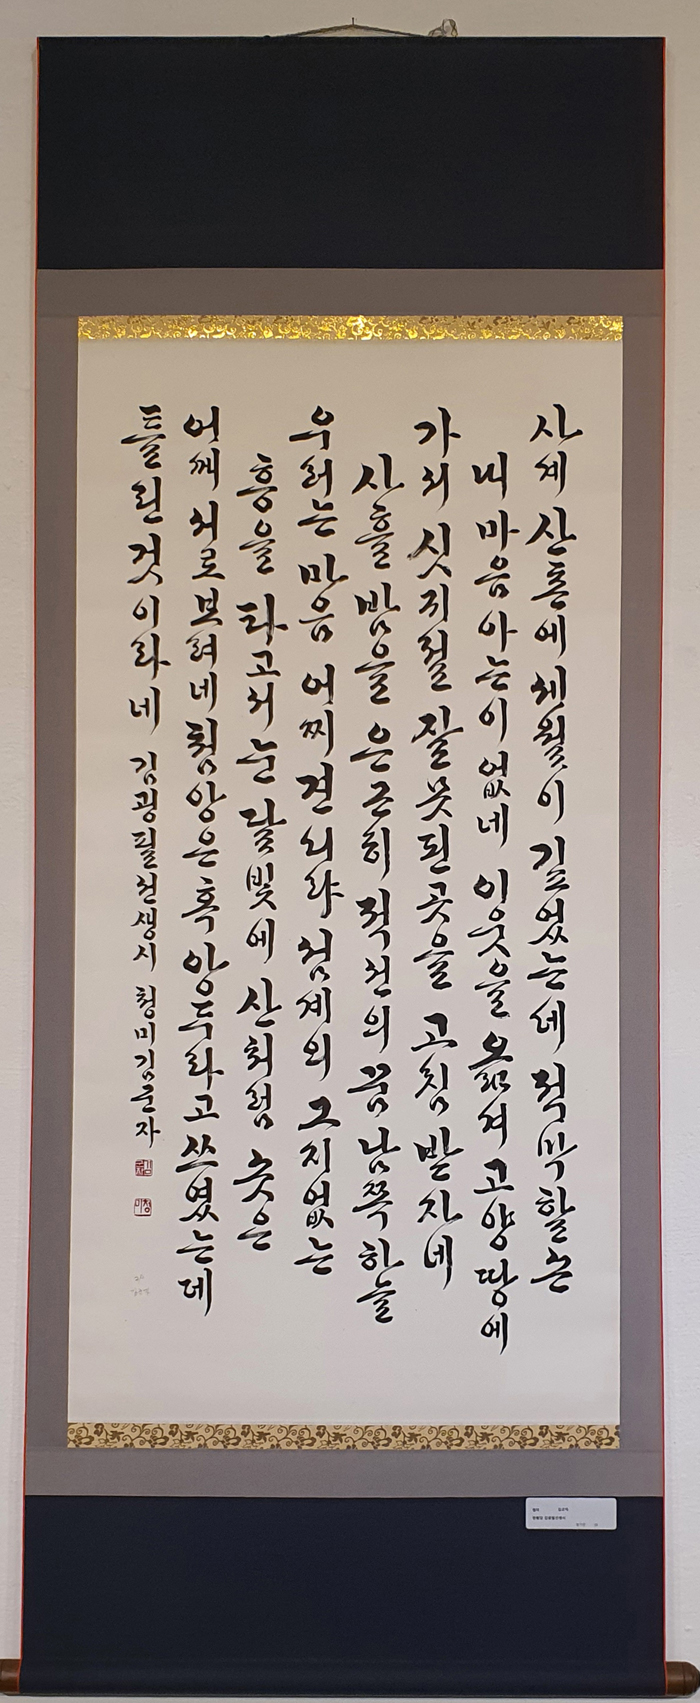 사계 산촌에 세월이 깊었는데 적막할손
내 마음 아는이 없네 이웃을 옮겨 고양 땅에
가리 싯지절 잘못된 곳을 고침 받자네
사흘 밤을 은근히 적선의 꿈 남쪽 하늘
우러는 마음 어찌 견디랴 섬계의 그지없는
흥을 타고서 눈 달빛에 산처럼 솟은
어깨 서로 보려네 침앙은 혹 앙두라고 쓰였는데
틀린 것이라네 김굉필선생시 청미김군자